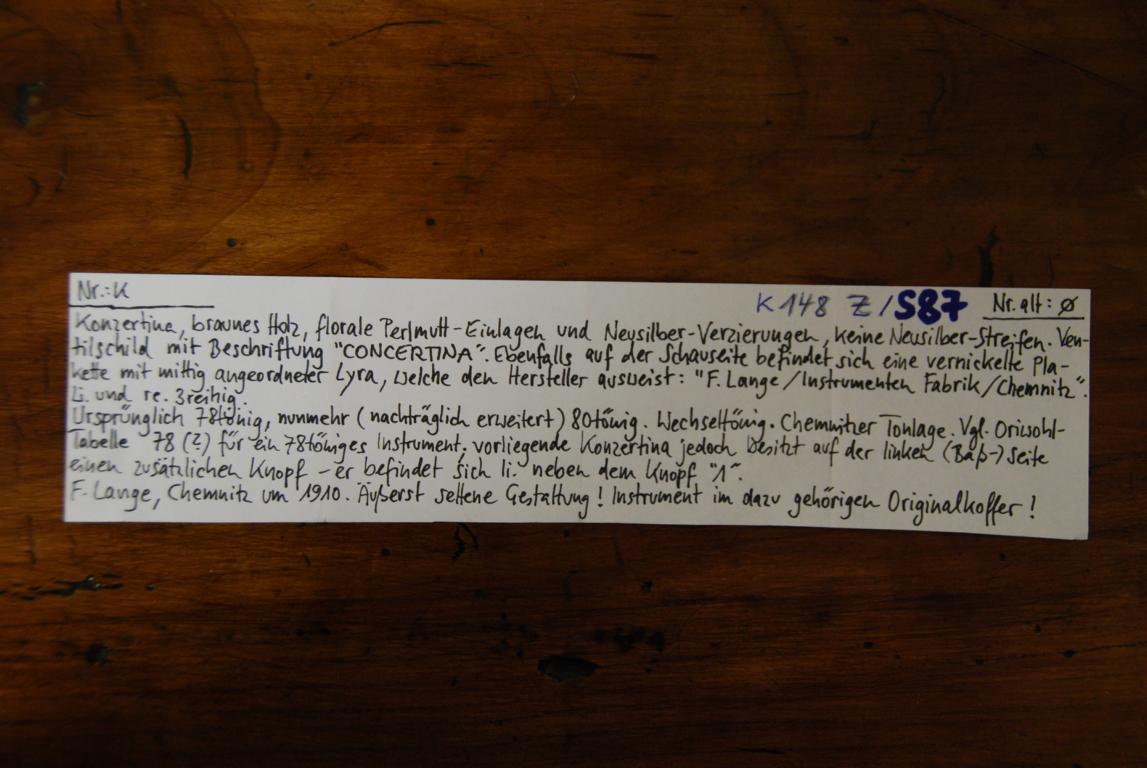 Nr.: K
K 148 Z/587 Nr. alt: ø
Konzertina, braunes Holz, florale Perlmutt-Einlagen und Neusilber-Verzierungen, keine Neusilber-Streifen. Ven-
tilschild mit Beschriftung "CONCERTINA". Ebenfalls auf der Schauseite befindet sich eine vernickelte Pla-
kette mit mittig angeordneter Lyra, welche den Hersteller ausweist: "F. Lange/Instrumenten Fabrik/Chemnitz".
Li. und re. 3reihig.
Ursprünglich 78tönig, nunmehr (nachträglich erweitert) 80tönig. Wechseltönig. Chemnitzer Tonlage. Vgl. Oriwohl-
Tabelle 78 (?) für ein 78töniges Instrument. vorliegende Konzertina jedoch besitzt auf der linken (Baß-) Seite
einen zusätzlichen Knopf - er befindet sich li. neben dem Knopf "1".
F. Lange, Chemnitz um 1910. Äußerst seltene Gestaltung! Instrument im dazu gehörigen Originalkoffer!